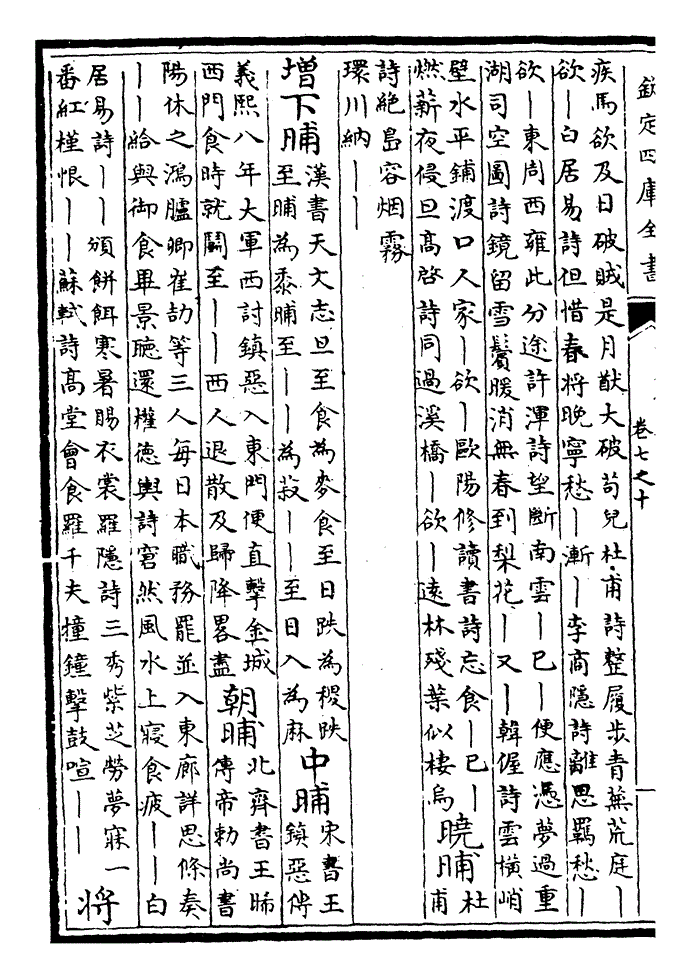 欽定四庫全書
卷七之十
疾馬欲及日破賊是月猷大破苟兒杜甫詩整履步青蕪荒庭｜
欲｜白居易詩但惜春將晚寧愁｜漸｜李商隱詩離思羈愁｜
欲｜東周西雍此分途許渾詩望斷南雲｜已｜便應憑夢過重
湖司空圖詩鏡留雪鬢暖消無春到梨花｜又｜韓偓詩雲橫峭
壁水平鋪渡口人家｜欲｜歐陽修讀書詩忘食｜已｜
燃薪夜侵旦高啓詩同過溪橋｜欲｜遠林殘葉似棲烏
曉晡
杜
甫
詩絶島容烟霧
環川納｜｜
增下晡
漢書天文志旦至食為麥食至日跌為稷跌
至晡為黍晡至｜｜為菽｜｜至日入為麻
中晡
宋書王
鎮惡傳
義熙八年大軍西討鎮惡入東門便直擊金城
西門食時就鬭至｜｜西人退散及歸降畧盡
朝晡
北齊書王晞
傳帝勅尚書
陽休之鴻臚卿崔劼等三人每日本職務罷並入東廊詳思條奏
｜｜給與御食畢景聽還權德輿詩窅然風水上寢食疲｜｜白
居易詩｜｜頒餅餌寒暑賜衣裳羅隱詩三秀紫芝勞夢寐一
番紅槿恨｜｜蘇軾詩高堂會食羅千夫撞鐘擊鼓喧｜｜
將